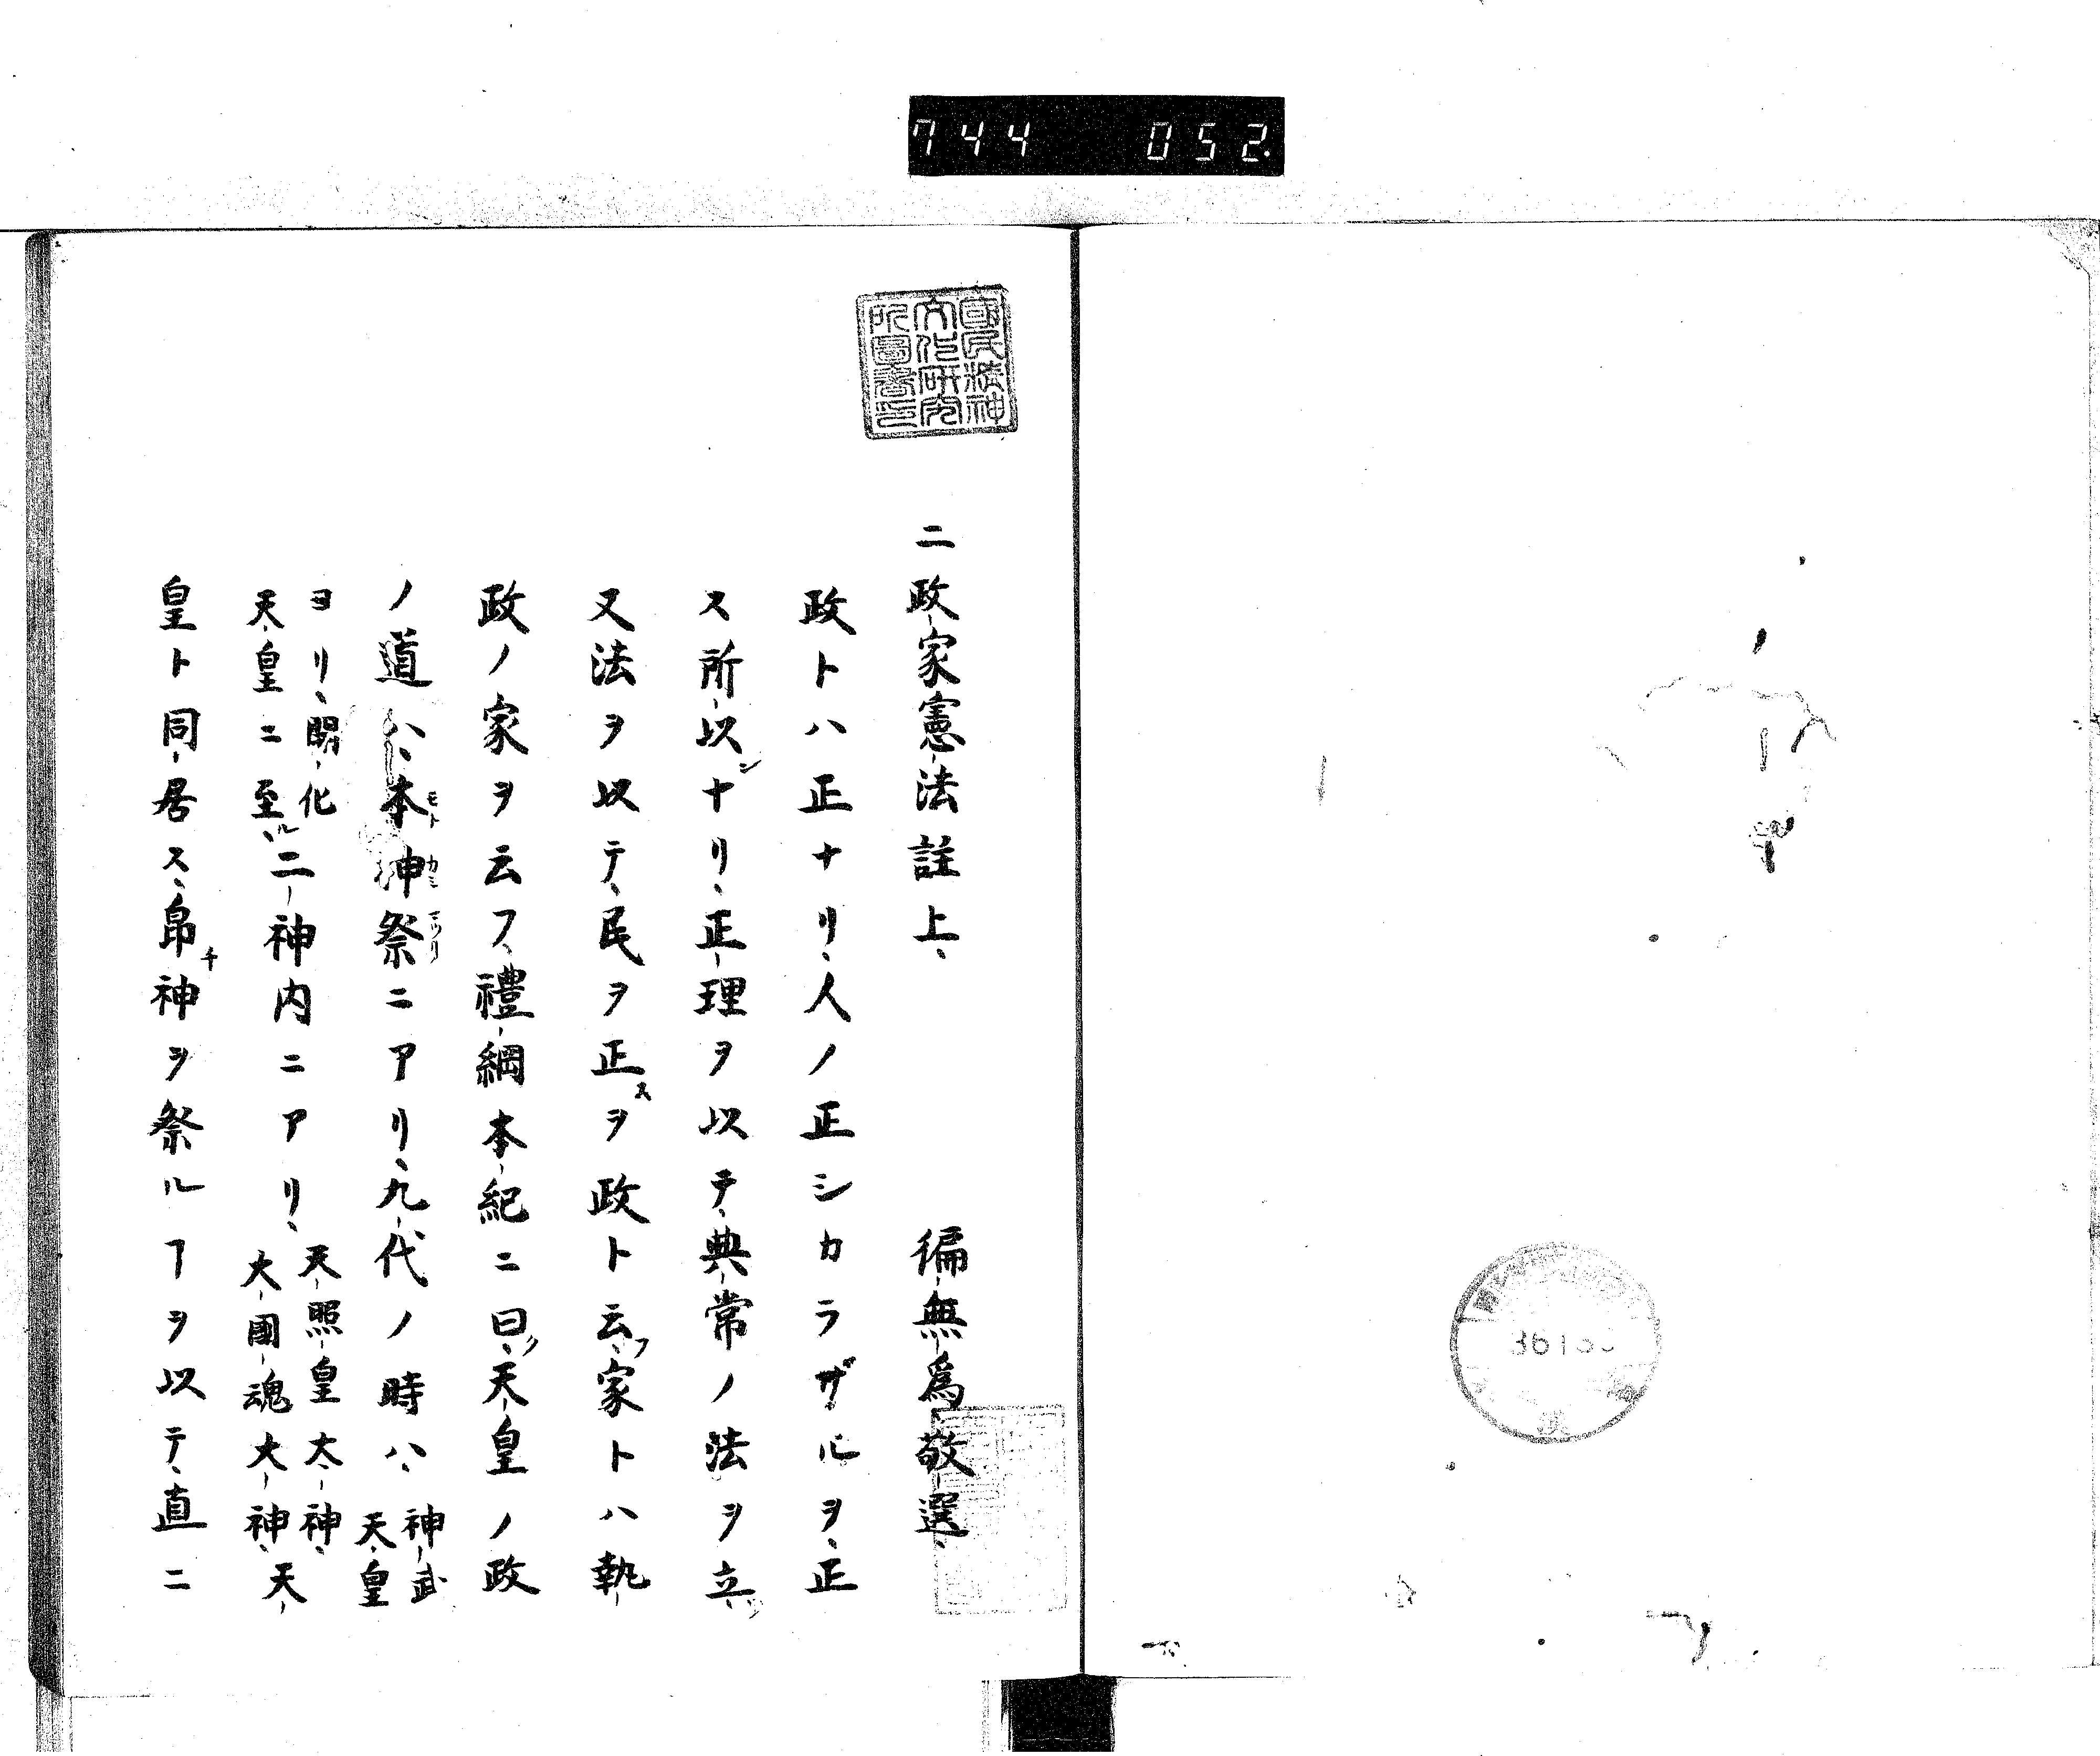 744 052.
國民精神
文化研究
所圖書印
二政家憲法註上、　　徧無爲敬選、
政トハ正ナリ、人ノ正シカラザルヲ、正
ス所以ナリ、正理ヲ以テ、典常ノ法ヲ立、
又法ヲ以テ、民ヲ正スヲ政ト云フ、家トハ執
政ノ家ヲ云フ、禮綱本紀ニ曰ク、天皇ノ政
ノ道ハ、本神祭ニアリ、九代ノ時ハ、神武天皇
モトカミマツリ
ヨリ、開化天皇ニ至ル、二神内ニアリ、天照皇大神、大國魂大神、天
皇ト同居ス、帛神ヲ祭ルヿヲ以テ、直ニ